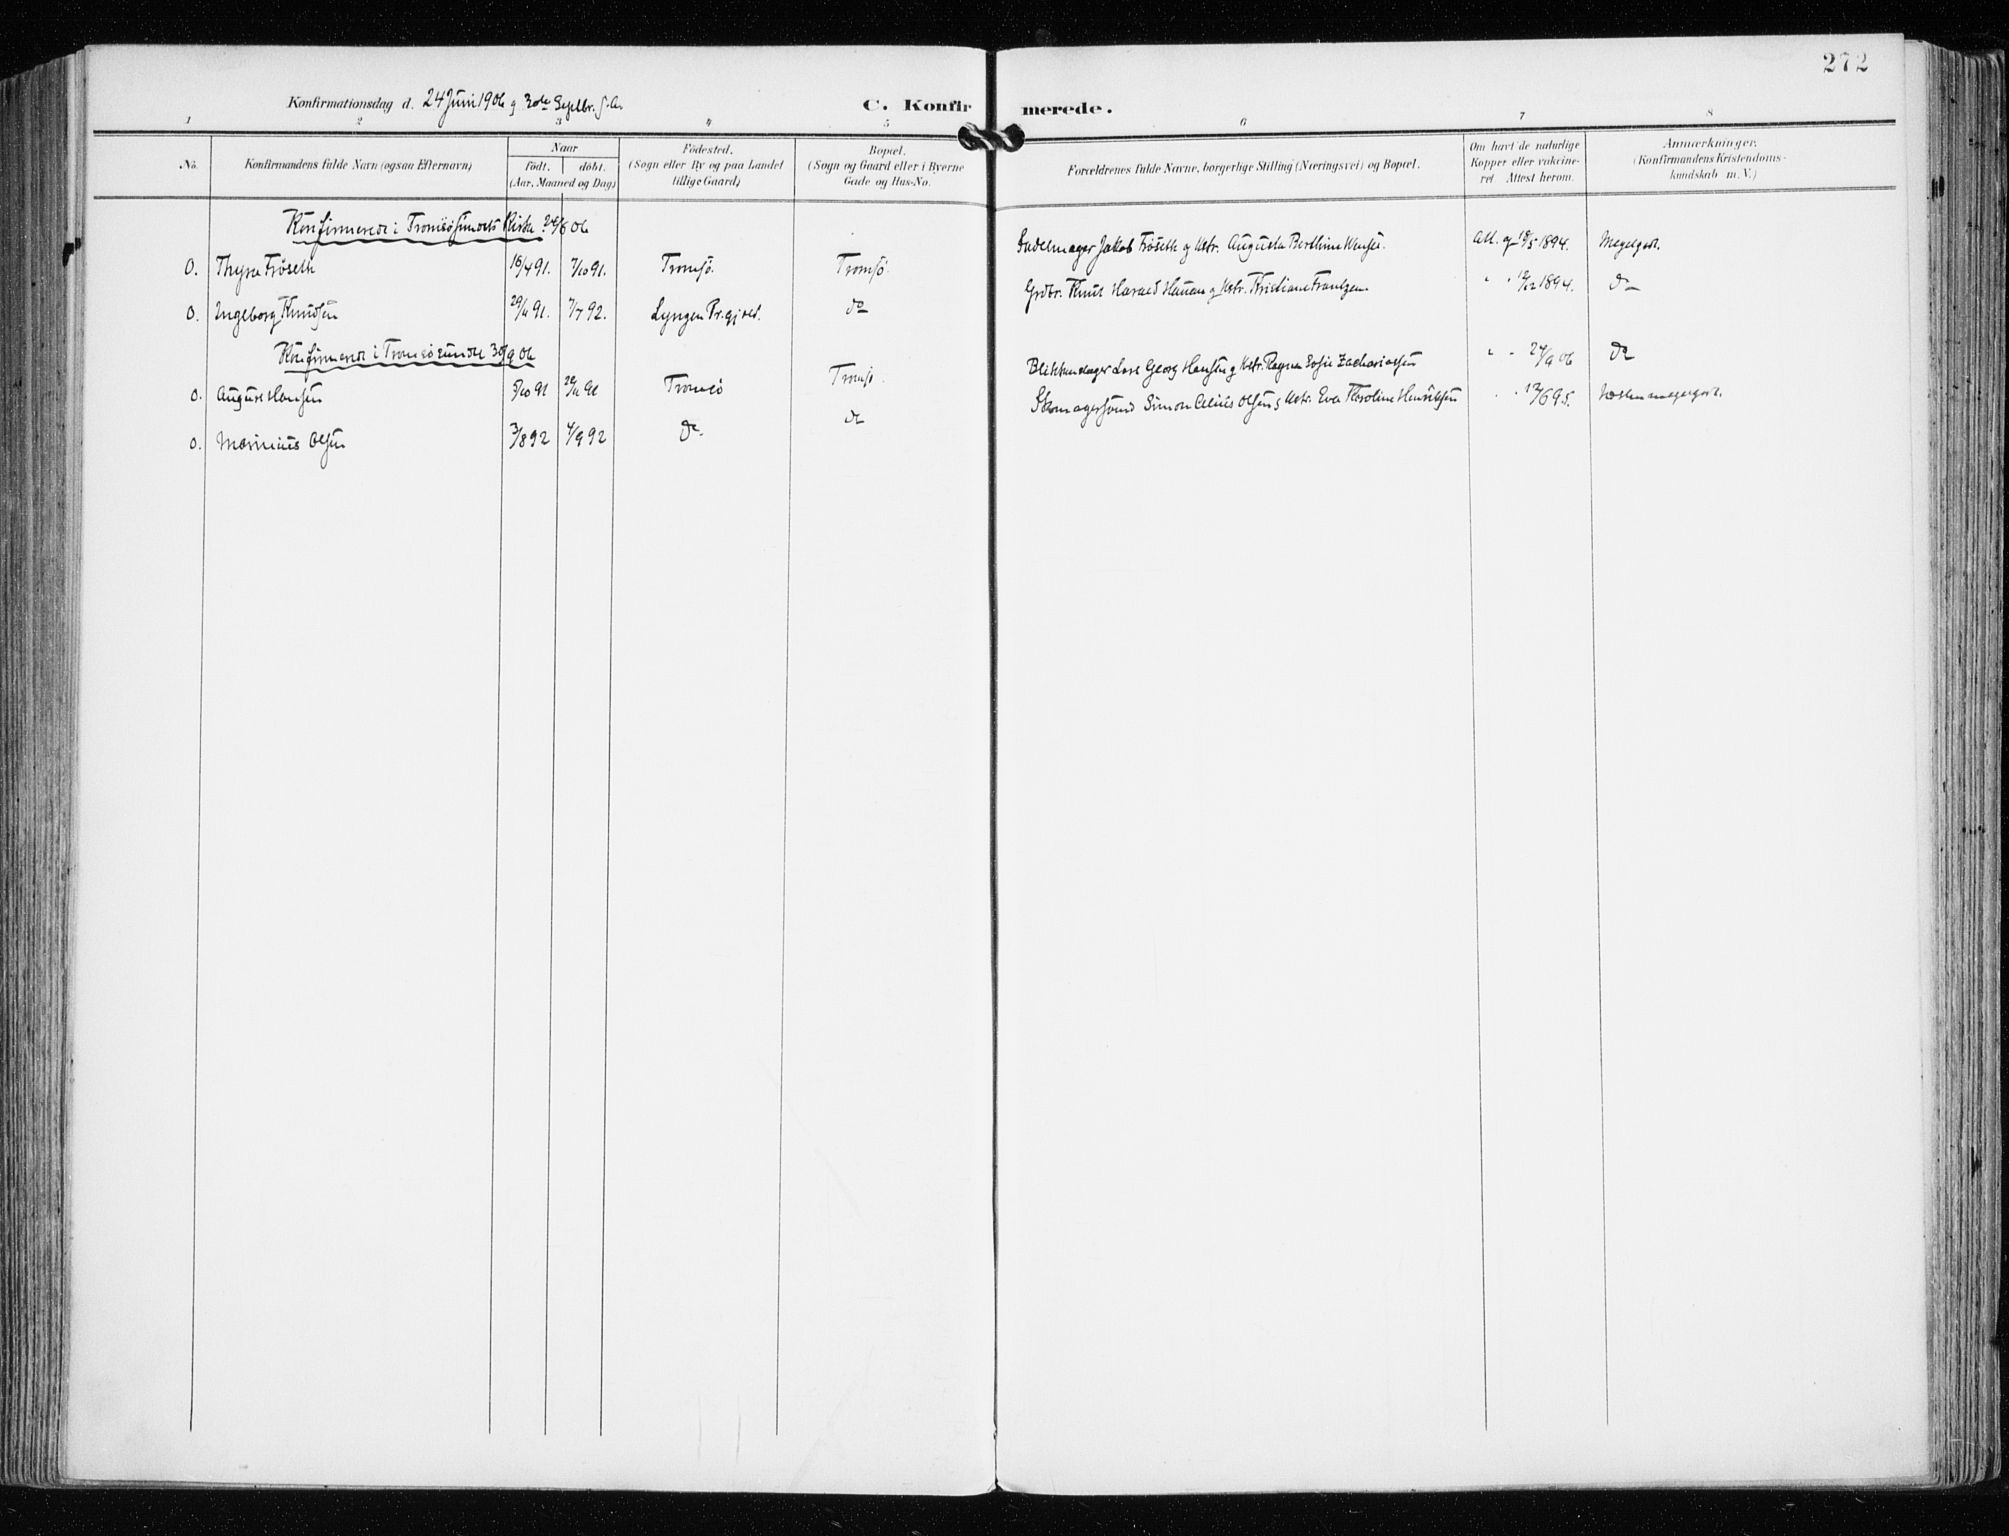 272
Konfirmationsdag d. 24 Juni 1906 og 30te Septbr. s. A.
C. Konfirmerede.
1 2 3 4 5 6 7 8
No. Konfirmandens fulde Navn (ogsaa Efternavn) Naar født. døbt. (Aar, Maaned og Dag) Fødested. (Sogn eller By og paa Landet tillige Gaard) Bopæl. (Sogn og Gaard eller i Byerne Gade og Hus-No. Forældrenes fulde Navne, borgerlige Stilling (Næringsvei) og Bopæl. Om havt de naturlige Kopper eller vakcineret. Attest herom. Anmærkninger. (Konfirmandens Kristendomskundskab m. V.)
Konfirmerede i Tromsøsundets Kirke 24/6 06
0. Thyra Frøseth 16/4 91. 7/10 91. Tromsø. Tromsø. Sadelmager Jakob Frøseth og Hstr. Augusta Berthine Att. af 18/5 1894. Megetgodt.
0. Ingeborg Knudsen 29/11 91. 7/7 92. Lyngen Pr.gjeld. do Grdbr. Knut Harald Hansen og Hstr. Kristiane Frantzen " " 12/12 1894. do
Konfirmerede i Tromsøsundet 30/9 06
0. August Hansen 5/10 91 29/11 91 Tromsø Tromsø. Blikkenslager Lars Georg Hansen og Hstr. Ragna Sofie Zachariassen " " 24/9 06 do
0. Marinius Olsen 3/8 92 4/9 92 do. do Skomagersvend Simon Celius Olsen og Hstr. Eva Karoline Henriksen " " 17/6 95. Næsten megetgodt.